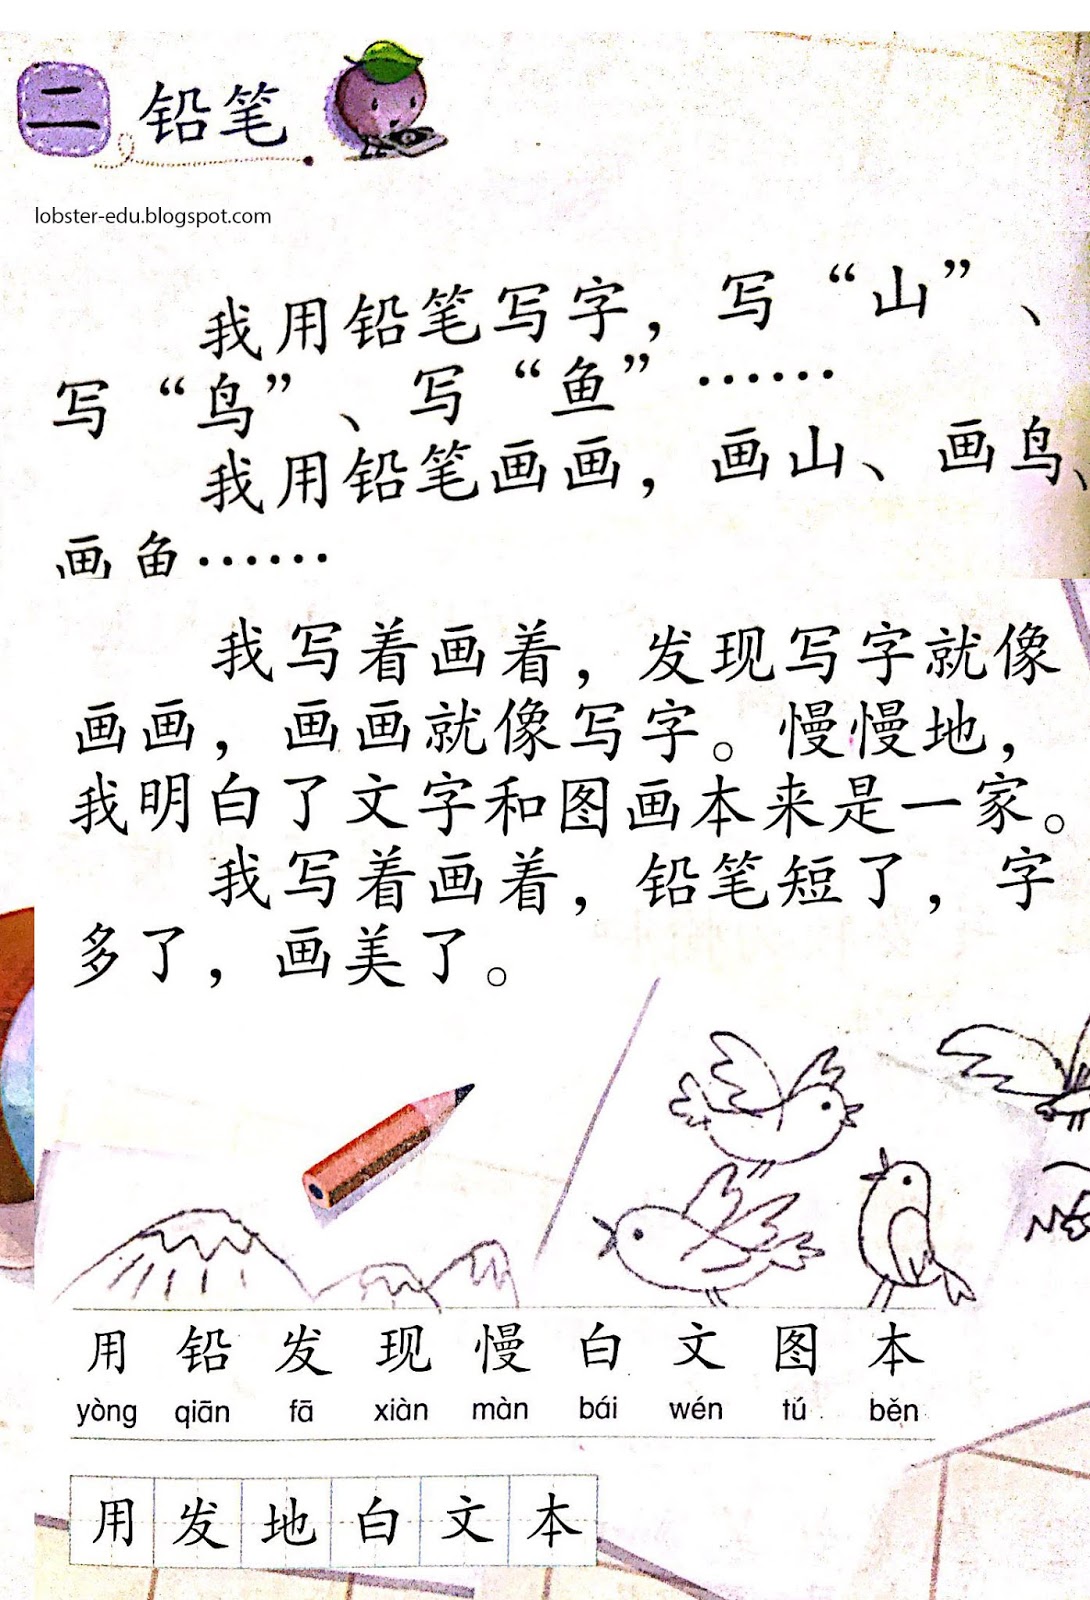 二 铅笔
lobster-edu.blogspot.com
我用铅笔写字，写“山”、
写“鸟”、写“鱼”……
我用铅笔画画，画山、画鸟、
画鱼……
我写着画着，发现写字就像
画画，画画就像写字。慢慢地，
我明白了文字和图画本来是一家。
我写着画着，铅笔短了，字
多了，画美了。
用 铅 发 现 慢 白 文 图 本
yòng qiān fā xiàn màn bái wén tú běn
用 发 地 白 文 本